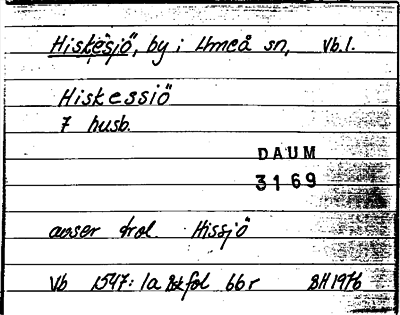 Hiskesjö, by i Umeå sn, Vb.l.
Hiskessiö
7 husb.
DAUM
3169
avser trol. Hissjö
Vb 1547: 1a fol 66 r BH 1976